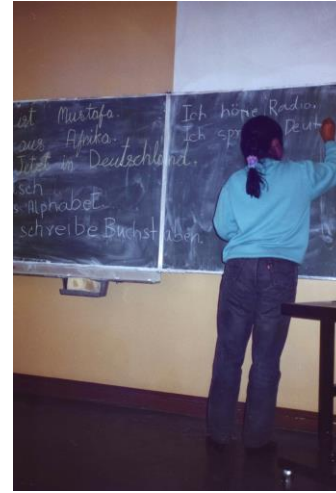 ist Mustafa.
aus Afrika.
Jetzt in Deutschland.
sch
s Alphabet
schreibe Buchstaben
Ich höre Radio.
Ich Deut